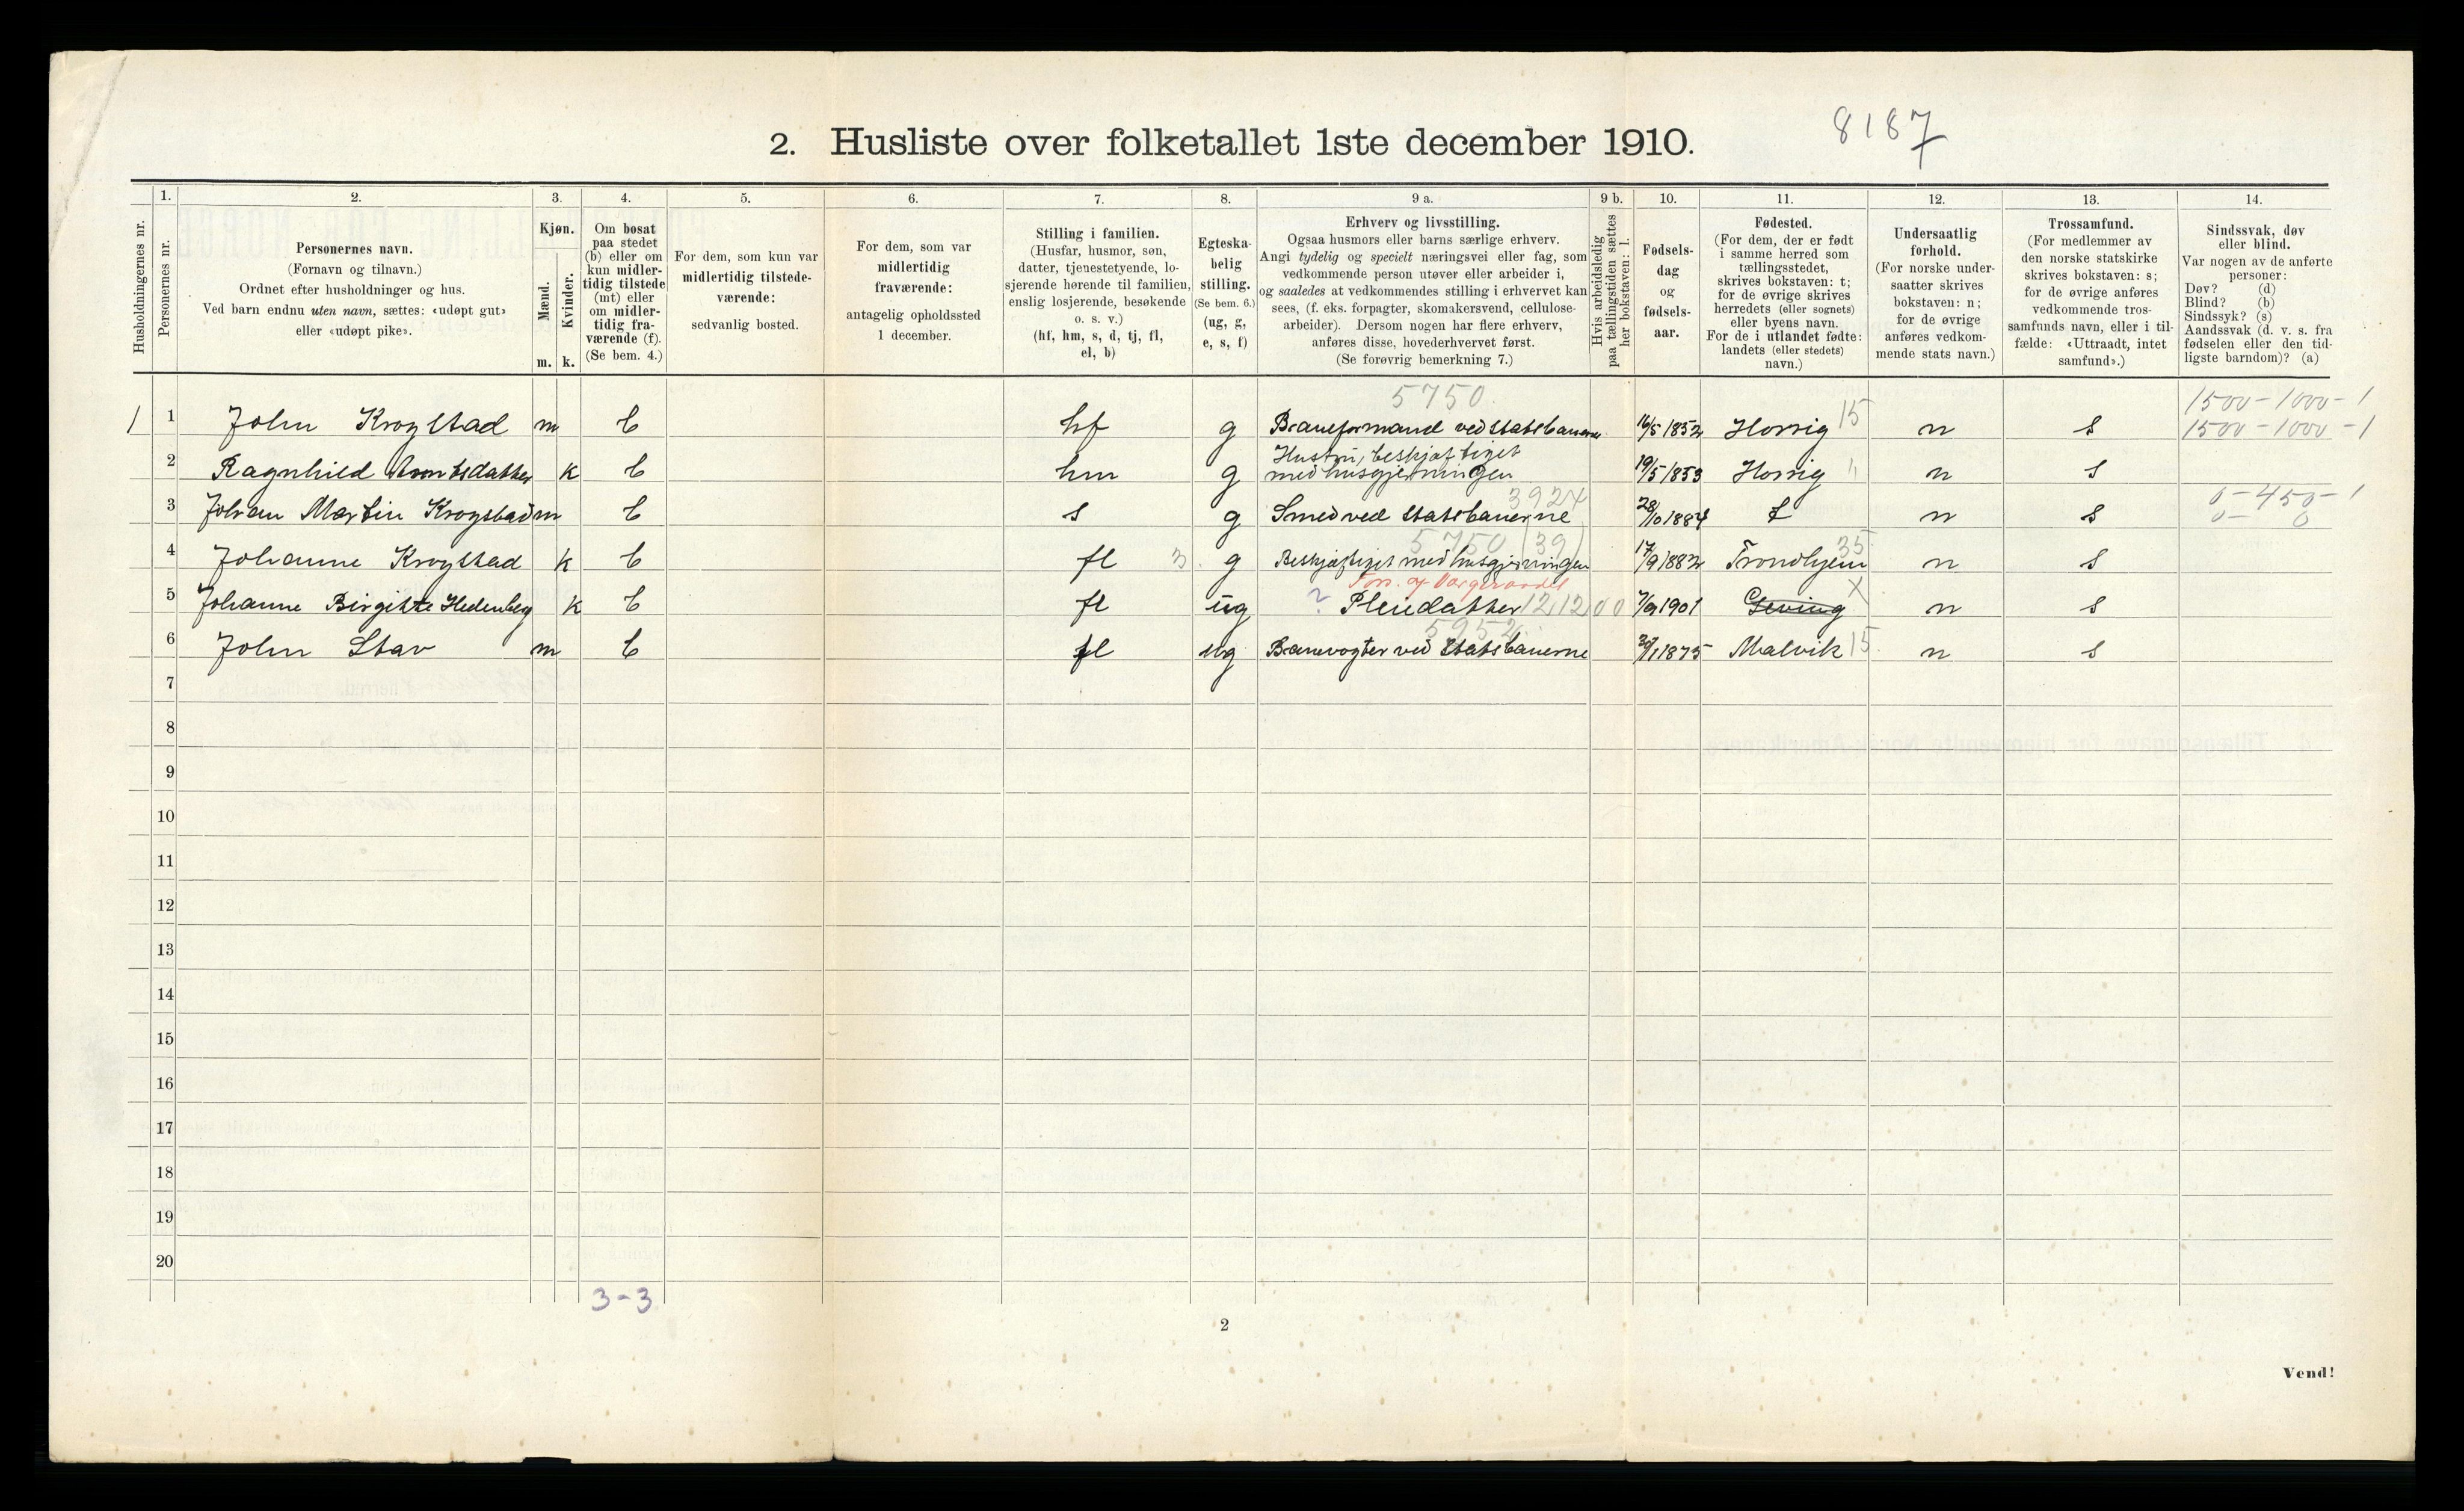 8187
2. Husliste over folketallet 1ste december 1910.
Husholdningernes nr.
1.
Personernes nr.
2.
Personernes navn.
(Fornavn og tilnavn.)
Ordnet efter husholdninger og hus.
Ved barn endnu uten navn, sættes: «udøpt gut»
eller «udøpt pike».
3.
Kjøn.
Mænd.
Kvinder.
m. k.
4.
Om bosat
paa stedet
(b) eller om
kun midler-
tidig tilstede
(mt) eller
om midler-
tidig fra-
værende (f).
(Se bem. 4.)
5.
For dem, som kun var
midlertidig tilstede-
værende:
sedvanlig bosted.
6.
For dem, som var
midlertidig
fraværende:
antagelig opholdssted
1 december.
7.
Stilling i familien.
(Husfar, husmor, søn,
datter, tjenestetyende, lo-
sjerende hørende til familien,
enslig losjerende, besøkende
o. s. v.)
(hf, hm, s, d, tj, fl,
el, b)
8.
Egteska-
belig
stilling.
(Se bem. 6.)
(ug, g,
e, s, f)
9 a.
Erhverv og livsstilling.
Ogsaa husmors eller barns særlige erhverv.
Angi tydelig og specielt næringsvei eller fag, som
vedkommende person utøver eller arbeider i,
og saaledes at vedkommendes stilling i erhvervet kan
sees, (f. eks. forpagter, skomakersvend, cellulose-
arbeider). Dersom nogen har flere erhverv,
anføres disse, hovederhvervet først.
(Se forøvrig bemerkning 7.)
9 b.
Hvis arbeidsledig
paa tællingstiden sættes
her bokstaven: l.
10.
Fødsels-
dag
og
fødsels-
aar.
11.
Fødested.
(For dem, der er født
i samme herred som
tællingsstedet,
skrives bokstaven: t;
for de øvrige skrives
herredets (eller sognets)
eller byens navn.
For de i utlandet fødte:
landets (eller stedets)
navn.)
12.
Undersaatlig
forhold.
(For norske under-
saatter skrives
bokstaven: n;
for de øvrige
anføres vedkom-
mende stats navn.)
13.
Trossamfund.
(For medlemmer av
den norske statskirke
skrives bokstaven: s;
for de øvrige anføres
vedkommende tros-
samfunds navn, eller i til-
fælde: «Uttraadt, intet
samfund».)
14.
Sindssvak, døv
eller blind.
Var nogen av de anførte
personer:
Døv? (d)
Blind? (b)
Sindssyk? (s)
Aandssvak (d. v. s. fra
fødselen eller den tid-
ligste barndom)? (a)
5750 1500-1000-1
1 1 John Krogstad m b hf g Baneformand ved statsbanerne 16/5 1852 Horrig 15 n s 1500-1000-1
Hustru, beskjæftiget
2 Ragnhild Arntsdatter k b hm g med husgjerningen 19/5 1853 Horrig " n s
3924 0-450-1
3 Johan Martin Krogstad m b s g Smed ved statsbanerne 28/10 1884 t n s 0- 0
5750 (39)
4 Johanne Krogstad k b fl 3 g Beskjæftiget med husgjerningen 17/9 1882 Trondhjem 35 n s
5 Johanne Birgitte Hedenberg k b fl ug ? Pleiedatter 12.12.00 7/9 1901 Geving X n s
5952
6 John Stav m b fl ug Banevogter ved Statsbanerne 30/1 1875 Malvik 15 n s
7
8
9
10
11
12
13
14
15
16
17
18
19
20
3-3
2
Vend!